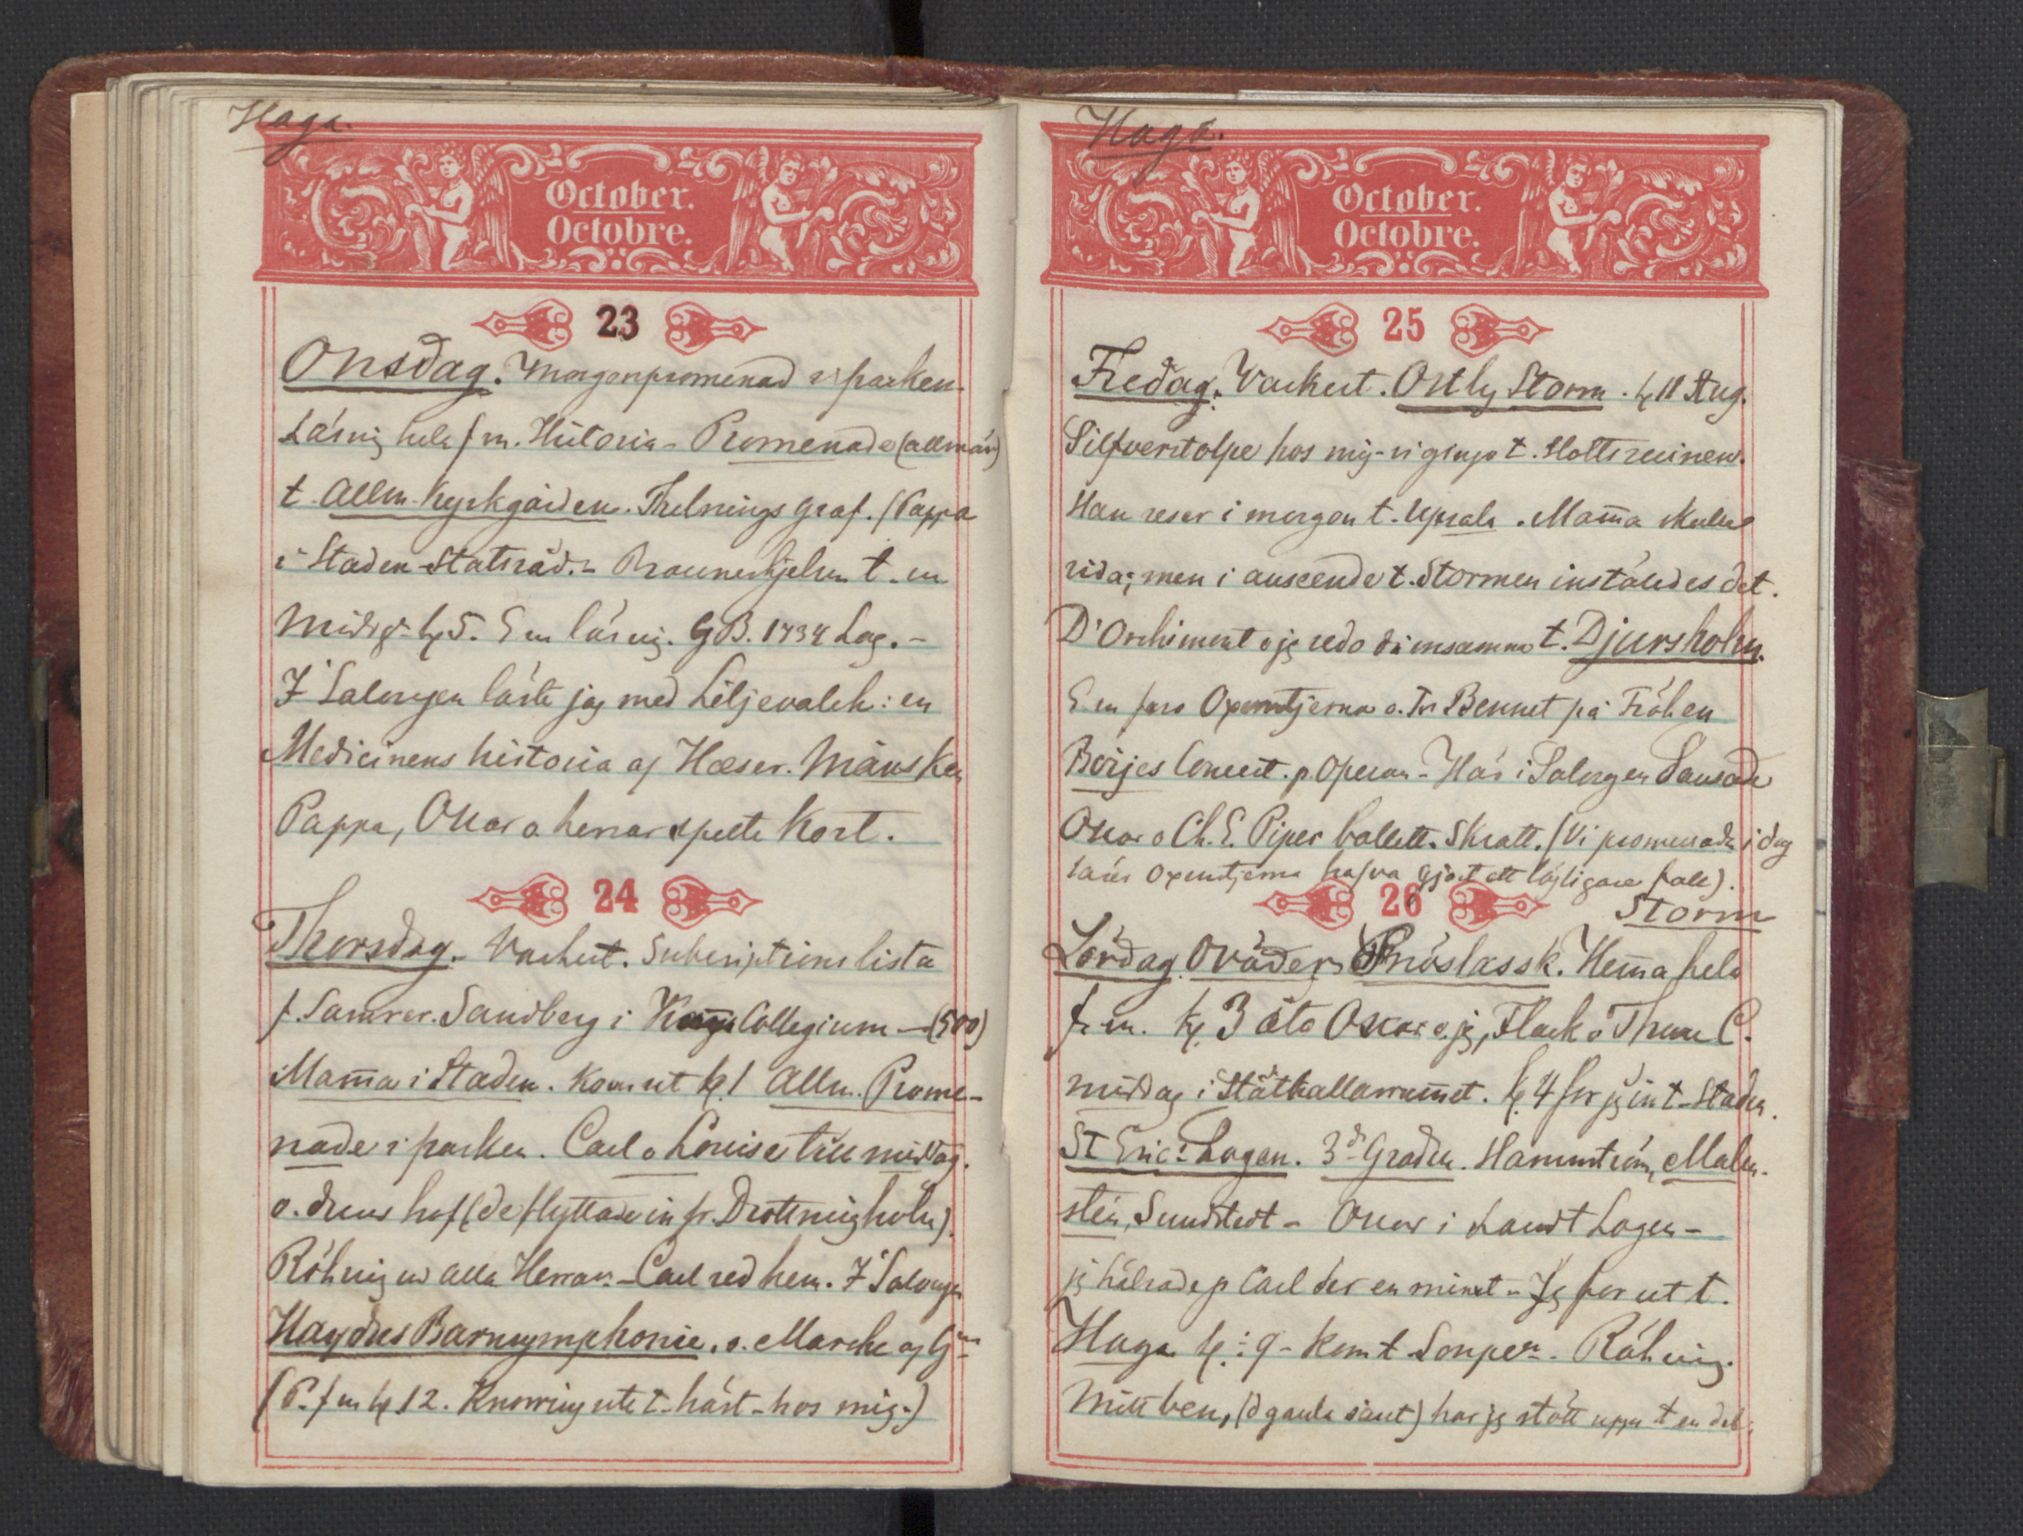 Haga.
October.
Octobre.
23
Onsdag. Morgonpromenad i parken.
Läsnig hela f m. Historia - Promenade (allmän)
t. Allm. Kyrkgården. Thelnings graf. (Pappa
i Staden Statsråd. - Braunerhjelm t. en
Midd. kl 5. E m läsnig. GB. 1734 Lag. -
I Salongen läste jag med Liljevalch: en
Medicinens historia af Hæser. Månsken
Pappa, Oscar o herrar spelte Kort.
24
Thorsdag. Vackert. Subscriptions lista
f. Samver. Sandberg i Collegium - (500)
Mam̄a i Staden. Kom ut kl. 1 Allm. Prome-
nade i parken. Carl o Louise till middag.
o. deras hof (de flyttade in fr. Drottnigholm).
Röhnig Alla Herrar. - Carl red hem. I Salongen
Haydns Barnsymphonie. o. Marche af G
(P. f m kl 12. Knorring ute t. häst - hos mig.)
Haga.
October.
Octobre.
25
Fredag. Vackert. Ostlig Storm. kl 11 Aug.
Silfverstolpe hos mig - vi gingo t. Slottsruinen.
Han reser i morgon t. Upsala. Mam̄a skulle
rida; men i anseende t. Stormen instäldes det.
D'Orchimont o jg redo då ensamma t. Djursholm.
E m foro Oxenstjerna o. Bennet på Fröken
Börjes Concert. p Operan - Här i Salongen Dansade
Oscar o Ch. E. Piper ballett. Skratt. (Vi promenade i dag
Oxenstjerna hafva gjort ett löjligare fall).
26
Storm
Lördag. Oväder. Snöslassk. Hem̄a hela
f. m. kl. 3 åto Oscar o. jg, Flack o Thure C.
middag i Ståthållarrum̄et. kl. 4 for jg in t. Staden.
St Erics Logen. 3d Graden. Hammström, Malm-
stén, Sundstedt - Oscar i Landt Logen -
jg hälsade p Carl der en minut - Jg for ut t.
Haga kl: 9 - kom t Soupen. Röhnig.
Mitt ben, (d gamla såret) har jg stött uppå t en del